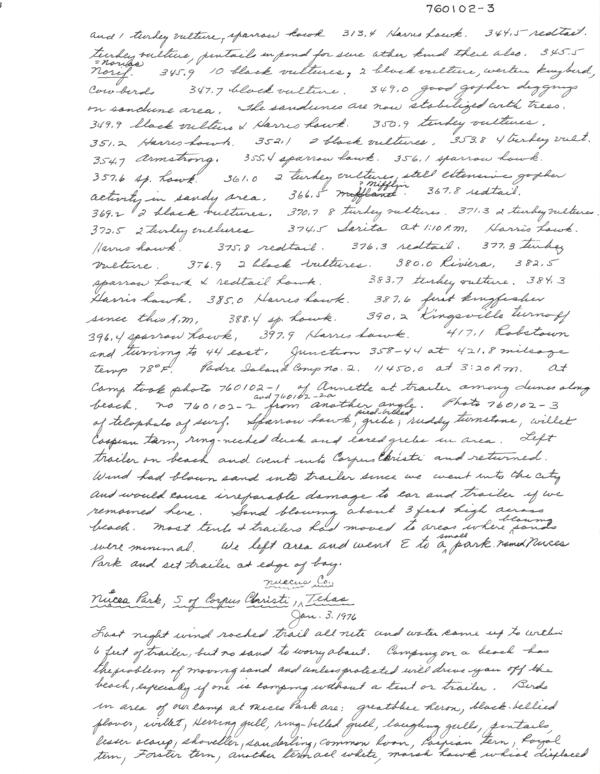 760102-3
and 1 turkey vulture, sparrow hawk 313.4 Harris hawk. 344.5 redtail.
turkey vulture, pintails in pond for sure other kind there also. 345.5
? Norias
Norif. 345.9 10 black vultures, 2 black vulture, western kingbird,
Cowbirds 347.7 black vulture. 349.0 good gopher diggings
on sanddune area. The sandunes are now stabilized with trees.
349.9 black vulture & Harris hawk. 350.9 turkey vultures.
351.2 Harris hawk. 352.1 2 black vultures. 353.8 4 turkey vult.
354.7 Armstrong. 355.4 sparrow hawk. 356.1 sparrow hawk.
357.6 sp. hawk. 361.0 2 turkey vulture, still extensive gopher
activity in sandy area. 366.5 ? Mifflin 367.8 redtail.
369.2 2 black vultures. 370.7 8 turkey vultures. 371.3 2 turkey vultures
372.5 2 turkey vultures 374.5 Sarita at 1:10 P.M. Harris hawk.
Harris hawk. 375.8 redtail. 376.3 redtail. 377.3 turkey
vulture. 376.9 2 black vultures. 380.0 Riviera, 382.5
sparrow hawk & redtail hawk. 383.7 turkey vulture. 384.3
Harris hawk. 385.0 Harris hawk. 387.6 first kingfisher
since this A.M. 388.4 sp. hawk. 390.2 Kingsville turnoff
396.4 sparrow hawk, 397.9 Harris hawk. 417.1 Robstown
and turning to 44 east. Junction 358-44 at 421.8 mileage
temp 78°F. Padre Island Camp no. 2. 11450.0 at 3:20 P.M. At
Camp took photo 760102-1 of Annette at trailer among dunes along
beach. no 760102-2 and 760102-2a from another angle. Photo 760102-3
of telephoto of surf. Sparrow hawk, pied-billed grebe, ruddy turnstone, willet
Caspian tern, ring-necked duck and eared grebe in area. Left
trailer on beach and went into Corpus Christi and returned.
Wind had blown sand into trailer since we went into the city
and would cause irreparable damage to car and trailer if we
remained here. Sand blowing about 3 feet high across
beach. Most tents & trailers had moved to areas where blowing sands
were minimal. We left area and went E to a small park named Nueces
Park and set trailer at edge of bay.
Nueces Co.
Nucea Park, S of Corpus Christi, Texas
Jan. 3. 1976
Last night wind rocked trail all nite and water came up to within
6 feet of trailer, but no sand to worry about. Camping on a beach has
the problem of moving sand and unless protected will drive you off the
beach, especially if one is camping without a tent or trailer. Birds
in area of our camp at Nuces Park are: great blue heron, black-bellied
plover, willet, Herring gull, ring-billed gull, laughing gulls, pintails,
lesser scaup, shoveller, sanderling, common loon, Caspian tern, Royal
tern, Forster tern, another tern all white, marsh hawk which displaced